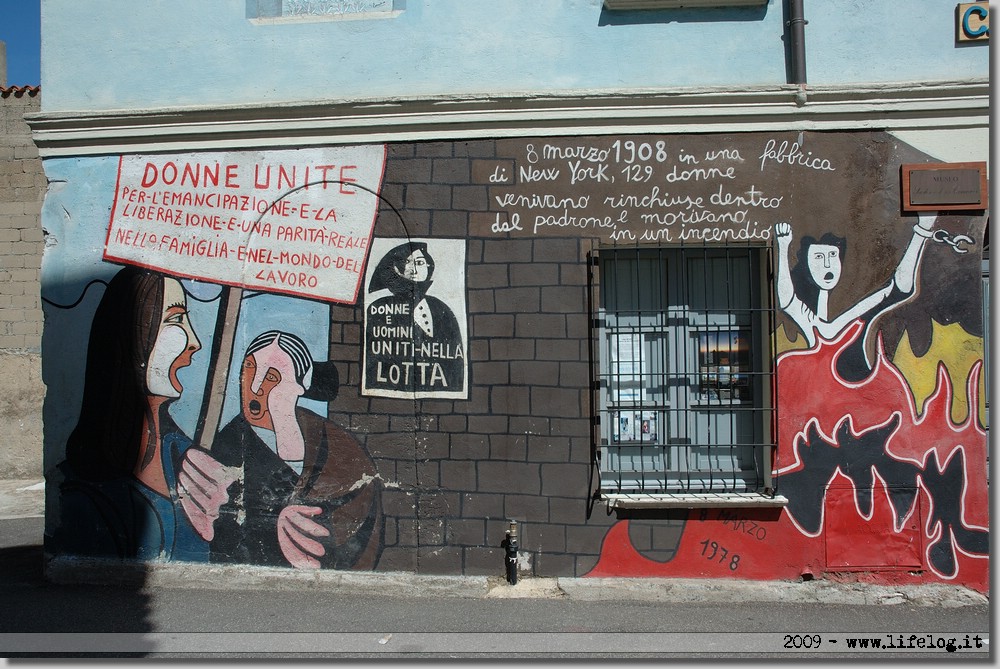 DONNE UNITE
PER-L'EMANCIPAZIONE-E-LA
LIBERAZIONE-E-UNA PARITÀ-REALE
NELLA-FAMIGLIA-E-NEL-MONDO-DEL
LAVORO
DONNE
E
UOMINI
UNITI-NELLA
LOTTA
8 marzo 1908 in una fabbrica
di New York, 129 donne
venivano rinchiuse dentro
dal padrone, e morivano,
in un incendio
C
MUSEO
8 MARZO
1978
2009 - www.lifelog.it